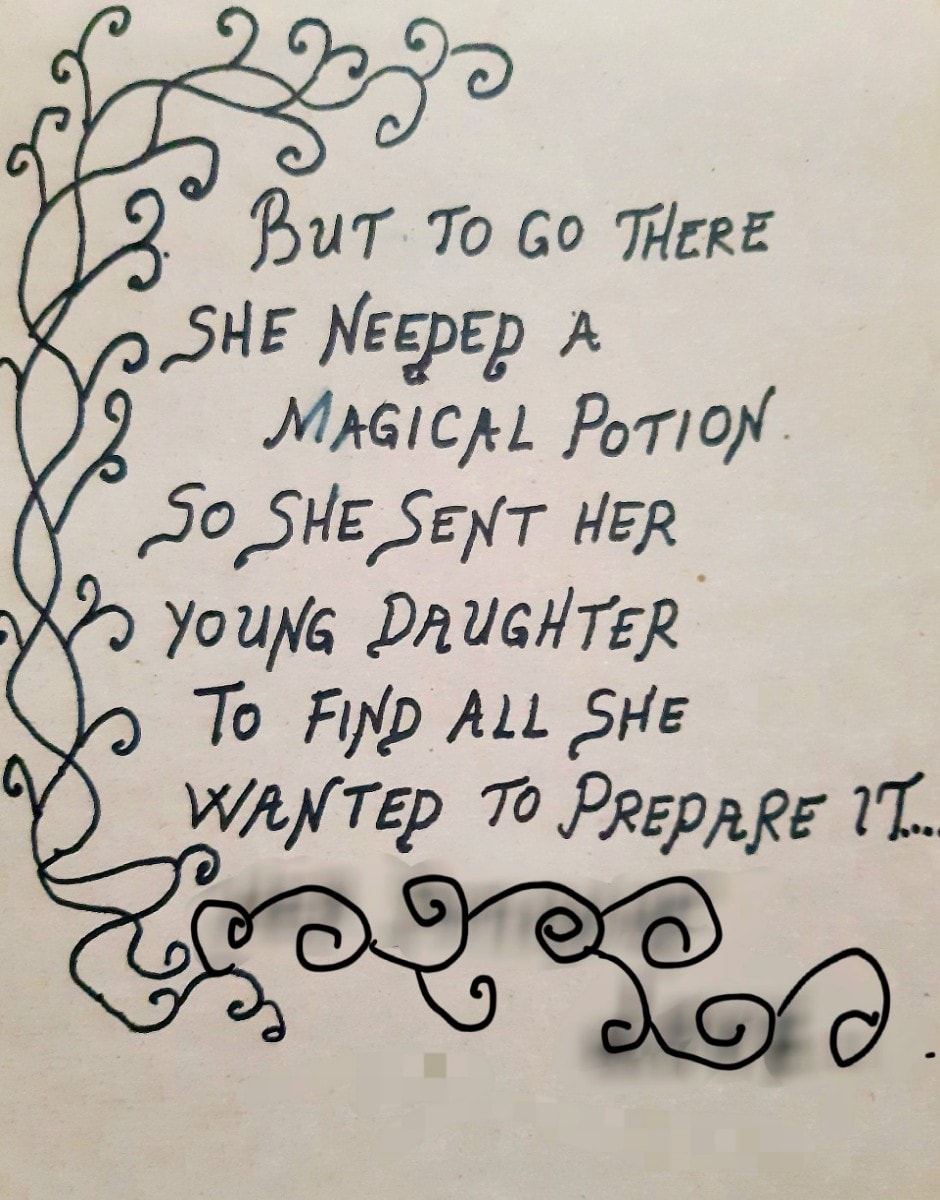 BUT TO GO THERE
SHE NEEDED A
MAGICAL POTION.
SO SHE SENT HER
YOUNG DAUGHTER
TO FIND ALL SHE
WANTED TO PREPARE IT....